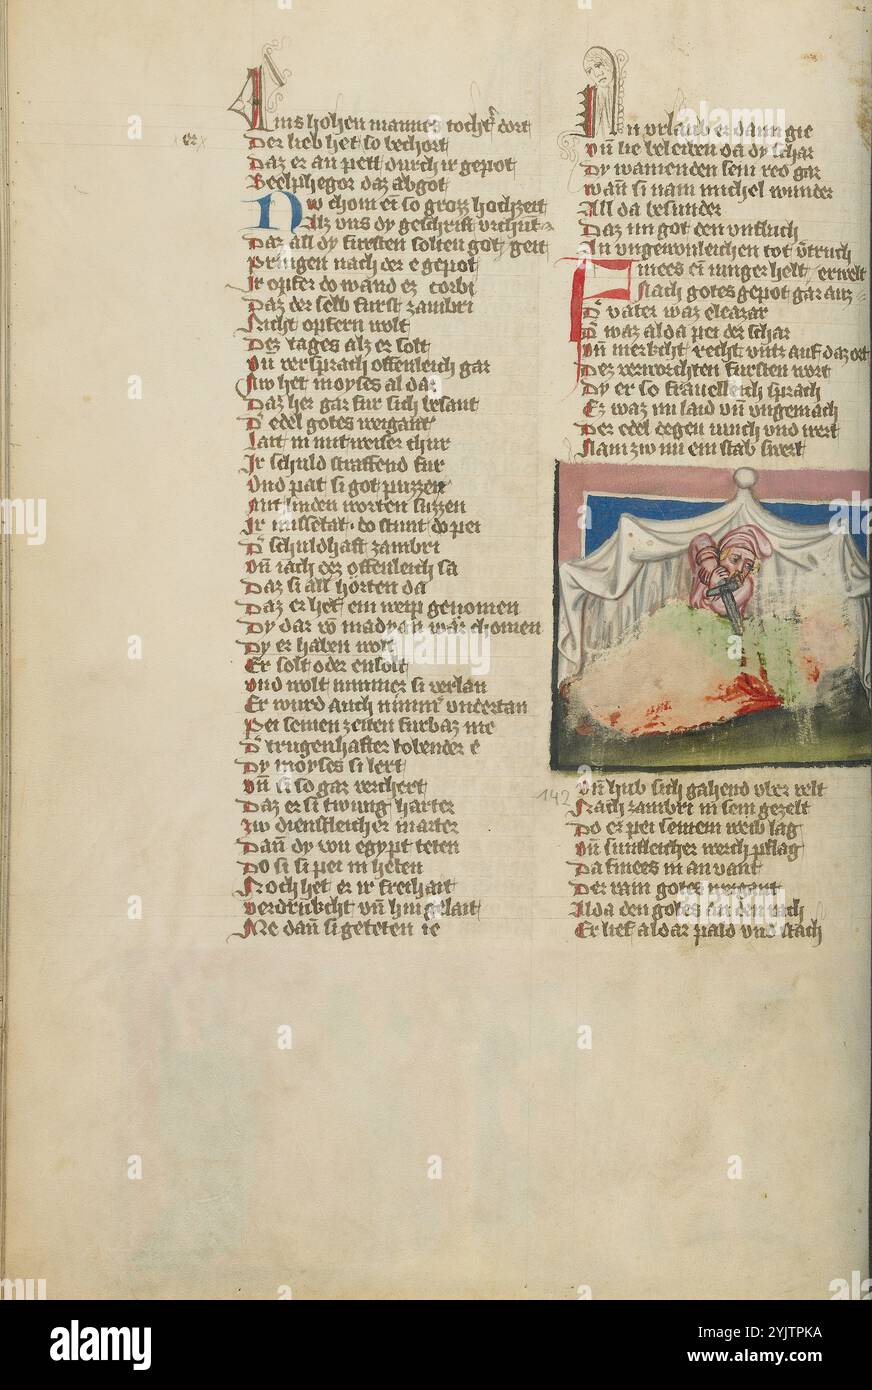 Ains hohen mannes tocht' dort
er
Der lieb het so bechort
Daz er an pett durch ir gepot
Beelphegor daz abgot
Nw chom ei so grozz hochzeit
Alz vns dy geschrift vrchut
Daz all dy fursten solten got geit
Pringen nach der e gepot
Ir opfer do wand ez corbi
Daz der selb furst zambri
Nicht opfern wolt
Dez tages alz er solt
Vn versprach offenleich gar
Nw het moyses al dar
Daz her gar fur sich besant
D' edel gotes weigant
Lait in mit weiser chur
Ir schuld straffend fur
Vnd pat si got puzzen
Mit linden worten suzzen
Ir missetat do stunt do pei
D' schuldhaft zambri
Vn iach dez offenleich sa
Daz si all horten da
Daz er het ein weip genomen
Dy dar vo madyan wär chomen
Dy er haben wolt
Er solt oder ensolt
Vnd wolt nimmer si verlan
Er wurd auch nimm' vndertan
Pei seinen zeiten furbaz me
D' trugenhafter tobender e
Dy moyses si lert
Vn si so gar verchert
Daz er si twung harter
Zw dienstleicher marter
Dan dy von egypt teten
Do si si pei in heten
Noch het er ir frechait
Verdrukcht vn hin gelait
Me dan si geteten ie
In vrlaub er dann gie
Vn lie beleiben da dy schar
Dy wainenden sein red gar
Wan si nam michel wunder
All da besunder
Daz im got den vnfluch
An vngewonleichen tot v'truch
Finees ei iunger helt erwelt
Nach gotes gepot gar auz
D' vater waz eleazar
D' waz alda pei der schar
Vn merkcht recht vntz auf daz ort
Dez verworchten fursten wort
Dy er so frauelleich sprach
Ez waz im laid vn vngemach
Der edel degen iunch vnd wert
Nam zw im ein stab swert
142
Vn hub sich gahend vber velt
Nach zambri in sein gezelt
Do er pei seinem weib lag
Vn suntleicher werch pflag
Da finees in an vant
Der rain gotes weigant
Alda den gotes an den rach
Er lief aldar pald vnd stach
alamy
alamy
alamy
Image ID: 2YJTPKA
www.alamy.com